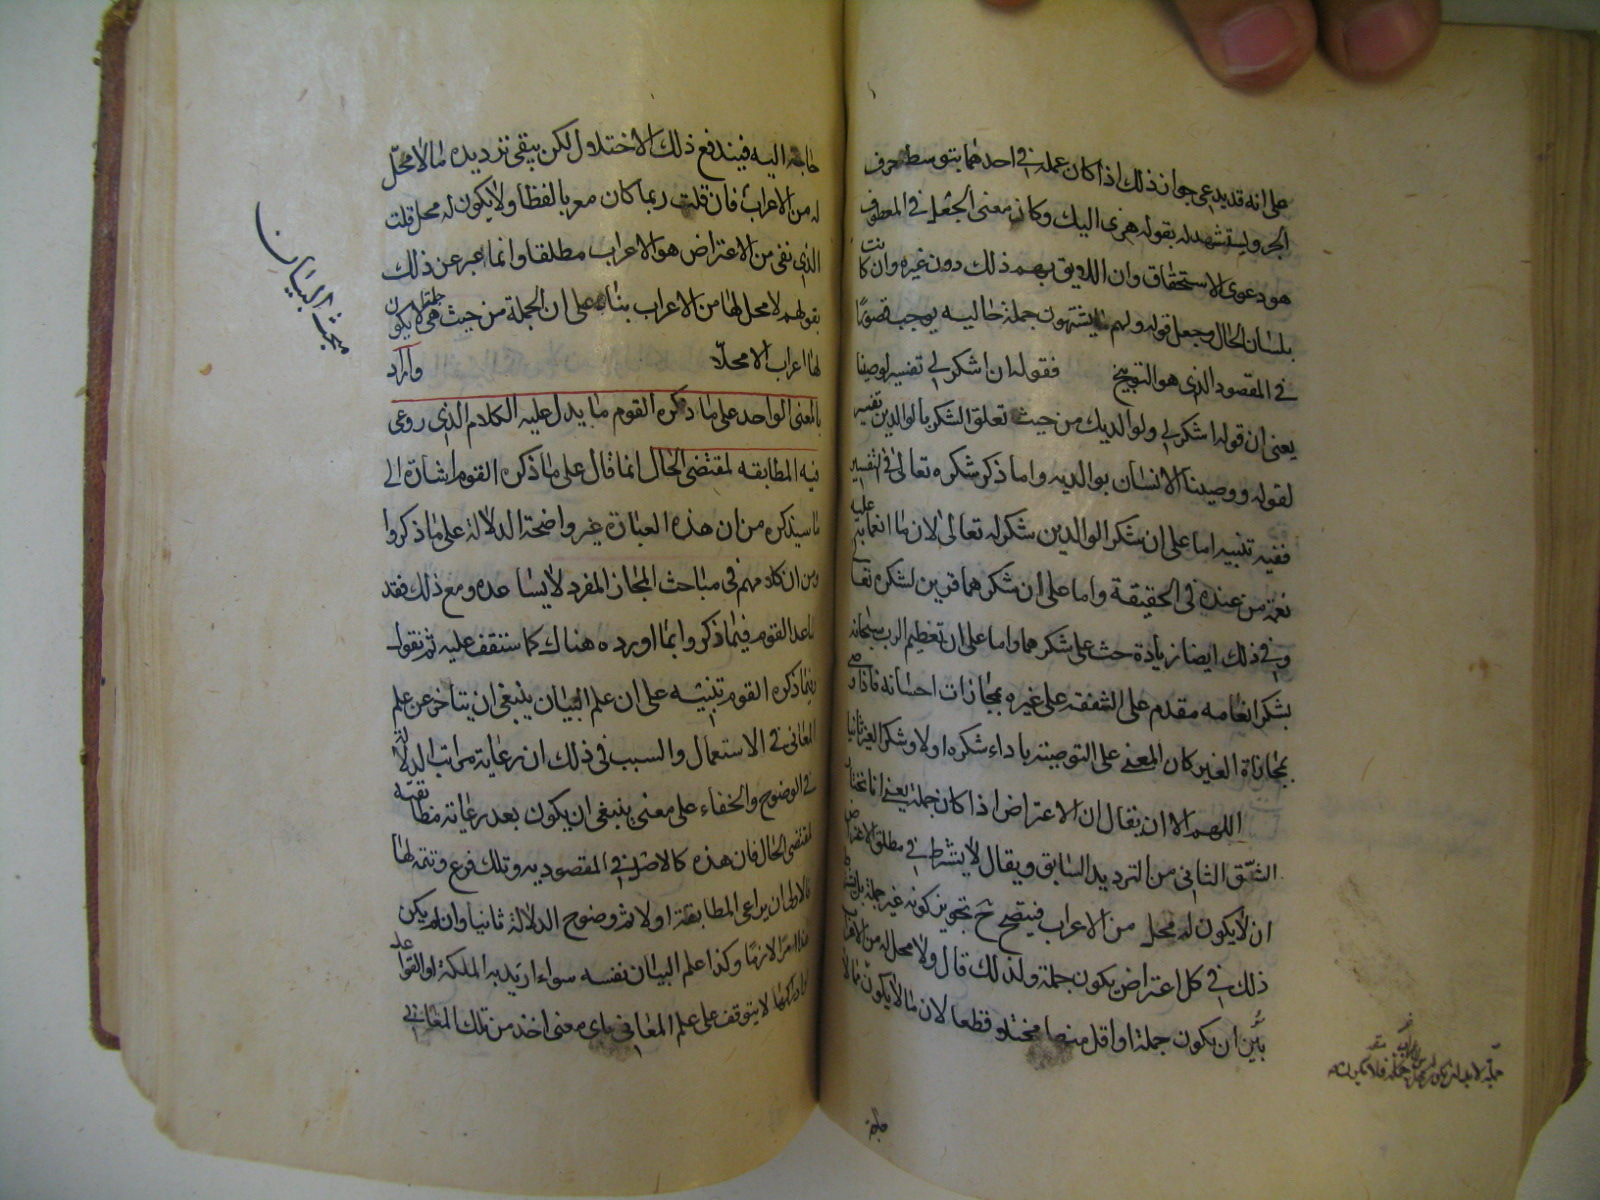 على انه قديدعى جواز ذلك اذا كان عمله في احدهما بتوسط حرف
الجر وليستشهد له بقوله هزى اليك وكان معنى الجعل في المعطوف
هو دعوى الاستحقاق وان اللايق بهم ذلك دون غيره وان كانت
بلسان الحال وجعل قوله ولهم ما يشتهون جملة حاليه يوجب قصورا
في المقصود الذي هو التوبيخ فقوله ان اشكر لي تفسير لوصينا
يعنى ان قوله اشكر لي ولوالديك من حيث تعلق الشكر بالوالدين تفسير
لقوله ووصينا الانسان بوالديه واما ذكر شكره تعالى في التفسير
ففيه تنبيه اما على ان شكر الوالدين شكر له تعالى لان ما انعما به عليه
نعمة من عنده في الحقيقة واما على ان شكرهما قرين لشكره تعالى
وفي ذلك ايضا زيادة حث على شكرهما واما على ان تعظيم الرب سبحانه
بشكر انعامه مقدم على الشفقة على غيره بمجازات احسانه فاذا وصى
بمجازاة الغير كان المعنى على التوصية باداء شكره اولا وشكر الغير ثانيا
اللهم الا ان يقال ان الاعتراض اذا كان جملة يعنى انا نختار
الشق الثاني من الترديد السابق ويقال لا يشترط في مطلق الاعتراض
ان لا يكون له محل من الاعراب فيتضح ح تجويز كونه غير جملة بل
ذلك في كل اعتراض يكون جملة ولذلك قال ولا محل له من الاعراب
بين ان يكون جملة او اقل منها مختلا قطعا لان ما لا يكون
جملة لابد ان يكون له محل من الاعراب
جملة
حاجة اليه فيندفع ذلك الاختلال لكن يبقى ترديده لما لا محل
له من الاعراب فان قلت ربما كان معربا لفظا ولا يكون له محل قلت
الذي نفى من الاعتراض هو الاعراب مطلقا وانما عبر عن ذلك
بقولهم لا محل لها من الاعراب بناء على ان الجملة من حيث هي جملة لا يكون
لها اعراب الا محلا وارد
بالمعنى الواحد على ما ذكره القوم ما يدل عليه الكلام الذي روعى
فيه المطابقه لمقتضى الحال انما قال على ما ذكره القوم اشارة الى
ما سيذكره من ان هذه العبارة غير واضحة الدلالة على ما ذكروا
ومن ان كلامهم في مباحث المجاز المفرد لا يساعده ومع ذلك فقد
ساعد القوم فيما ذكروا بما اورده هناك كما ستقف عليه ثم نقول
فيما ذكره القوم تنبيه على ان علم البيان ينبغى ان يتاخر عن علم
المعاني في الاستعمال والسبب في ذلك ان رعاية مراتب الدلالة
في الوضوح والخفاء على معنى ينبغى ان يكون بعد رعاية مطابقته
لمقتضى الحال فان هذه كالاصل في المقصودية وتلك فرع وتتمة لها
فالاولى ان يراعى المطابقة اولا ثم وضوح الدلالة ثانيا وان لم يكن
هذا امرا لازما وكذا علم البيان نفسه سواء اريد به الملكة او القواعد
او ادراكها لا يتوقف على علم المعاني باى معنى اخذ من تلك المعاني
مبحث البيان